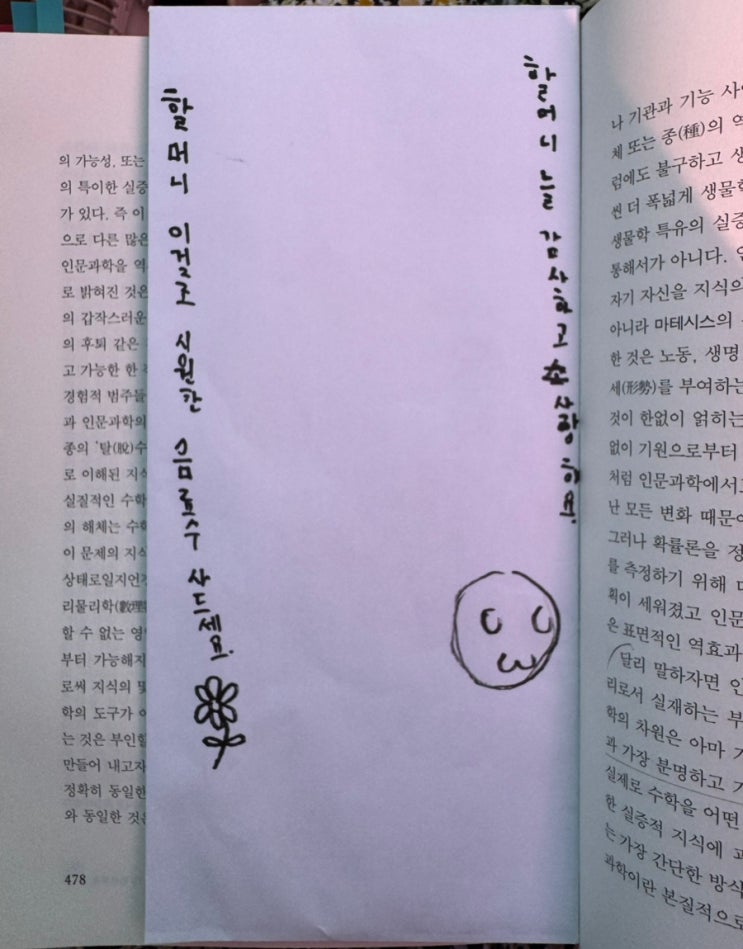 의 가능성, 또는
의 특이한 실증
가 있다. 즉 이
으로 다른 많은
인문과학을 역
로 밝혀진 것은
의 갑작스러운
의 후퇴 같은
고 가능한 한
경험적 범주들
과 인문과학의
종의 '탈(脫)수
로 이해된 지식
실질적인 수학
의 해체는 수학
이 문제의 지식
상태로일지언정
리물리학(數理
할 수 없는 영
부터 가능해지
로써 지식의 몇
학의 도구가
는 것은 부인할
만들어 내고자
정확히 동일한
와 동일한 것은
478
할머니 늘 감사하고 사랑해요.
할머니 이걸로 시원한 음료수 사드세요.
나 기관과 기능 사
체 또는 종(種)의 역
럼에도 불구하고 생
씬 더 폭넓게 생물학
생물학 특유의 실증
통해서가 아니다.
자기 자신을 지식의
아니라 마테시스의
한 것은 노동, 생명
세(形勢)를 부여하는
것이 한없이 얽히는
없이 기원으로부터
처럼 인문과학에서
난 모든 변화 때문에
그러나 확률론을 정
를 측정하기 위해
획이 세워졌고 인문
은 표면적인 역효과
달리 말하자면 인
리로서 실재하는 부
학의 차원은 아마
과 가장 분명하고
실제로 수학을 어떤
한 실증적 지식에
는 가장 간단한 방식
과학이란 본질적으로